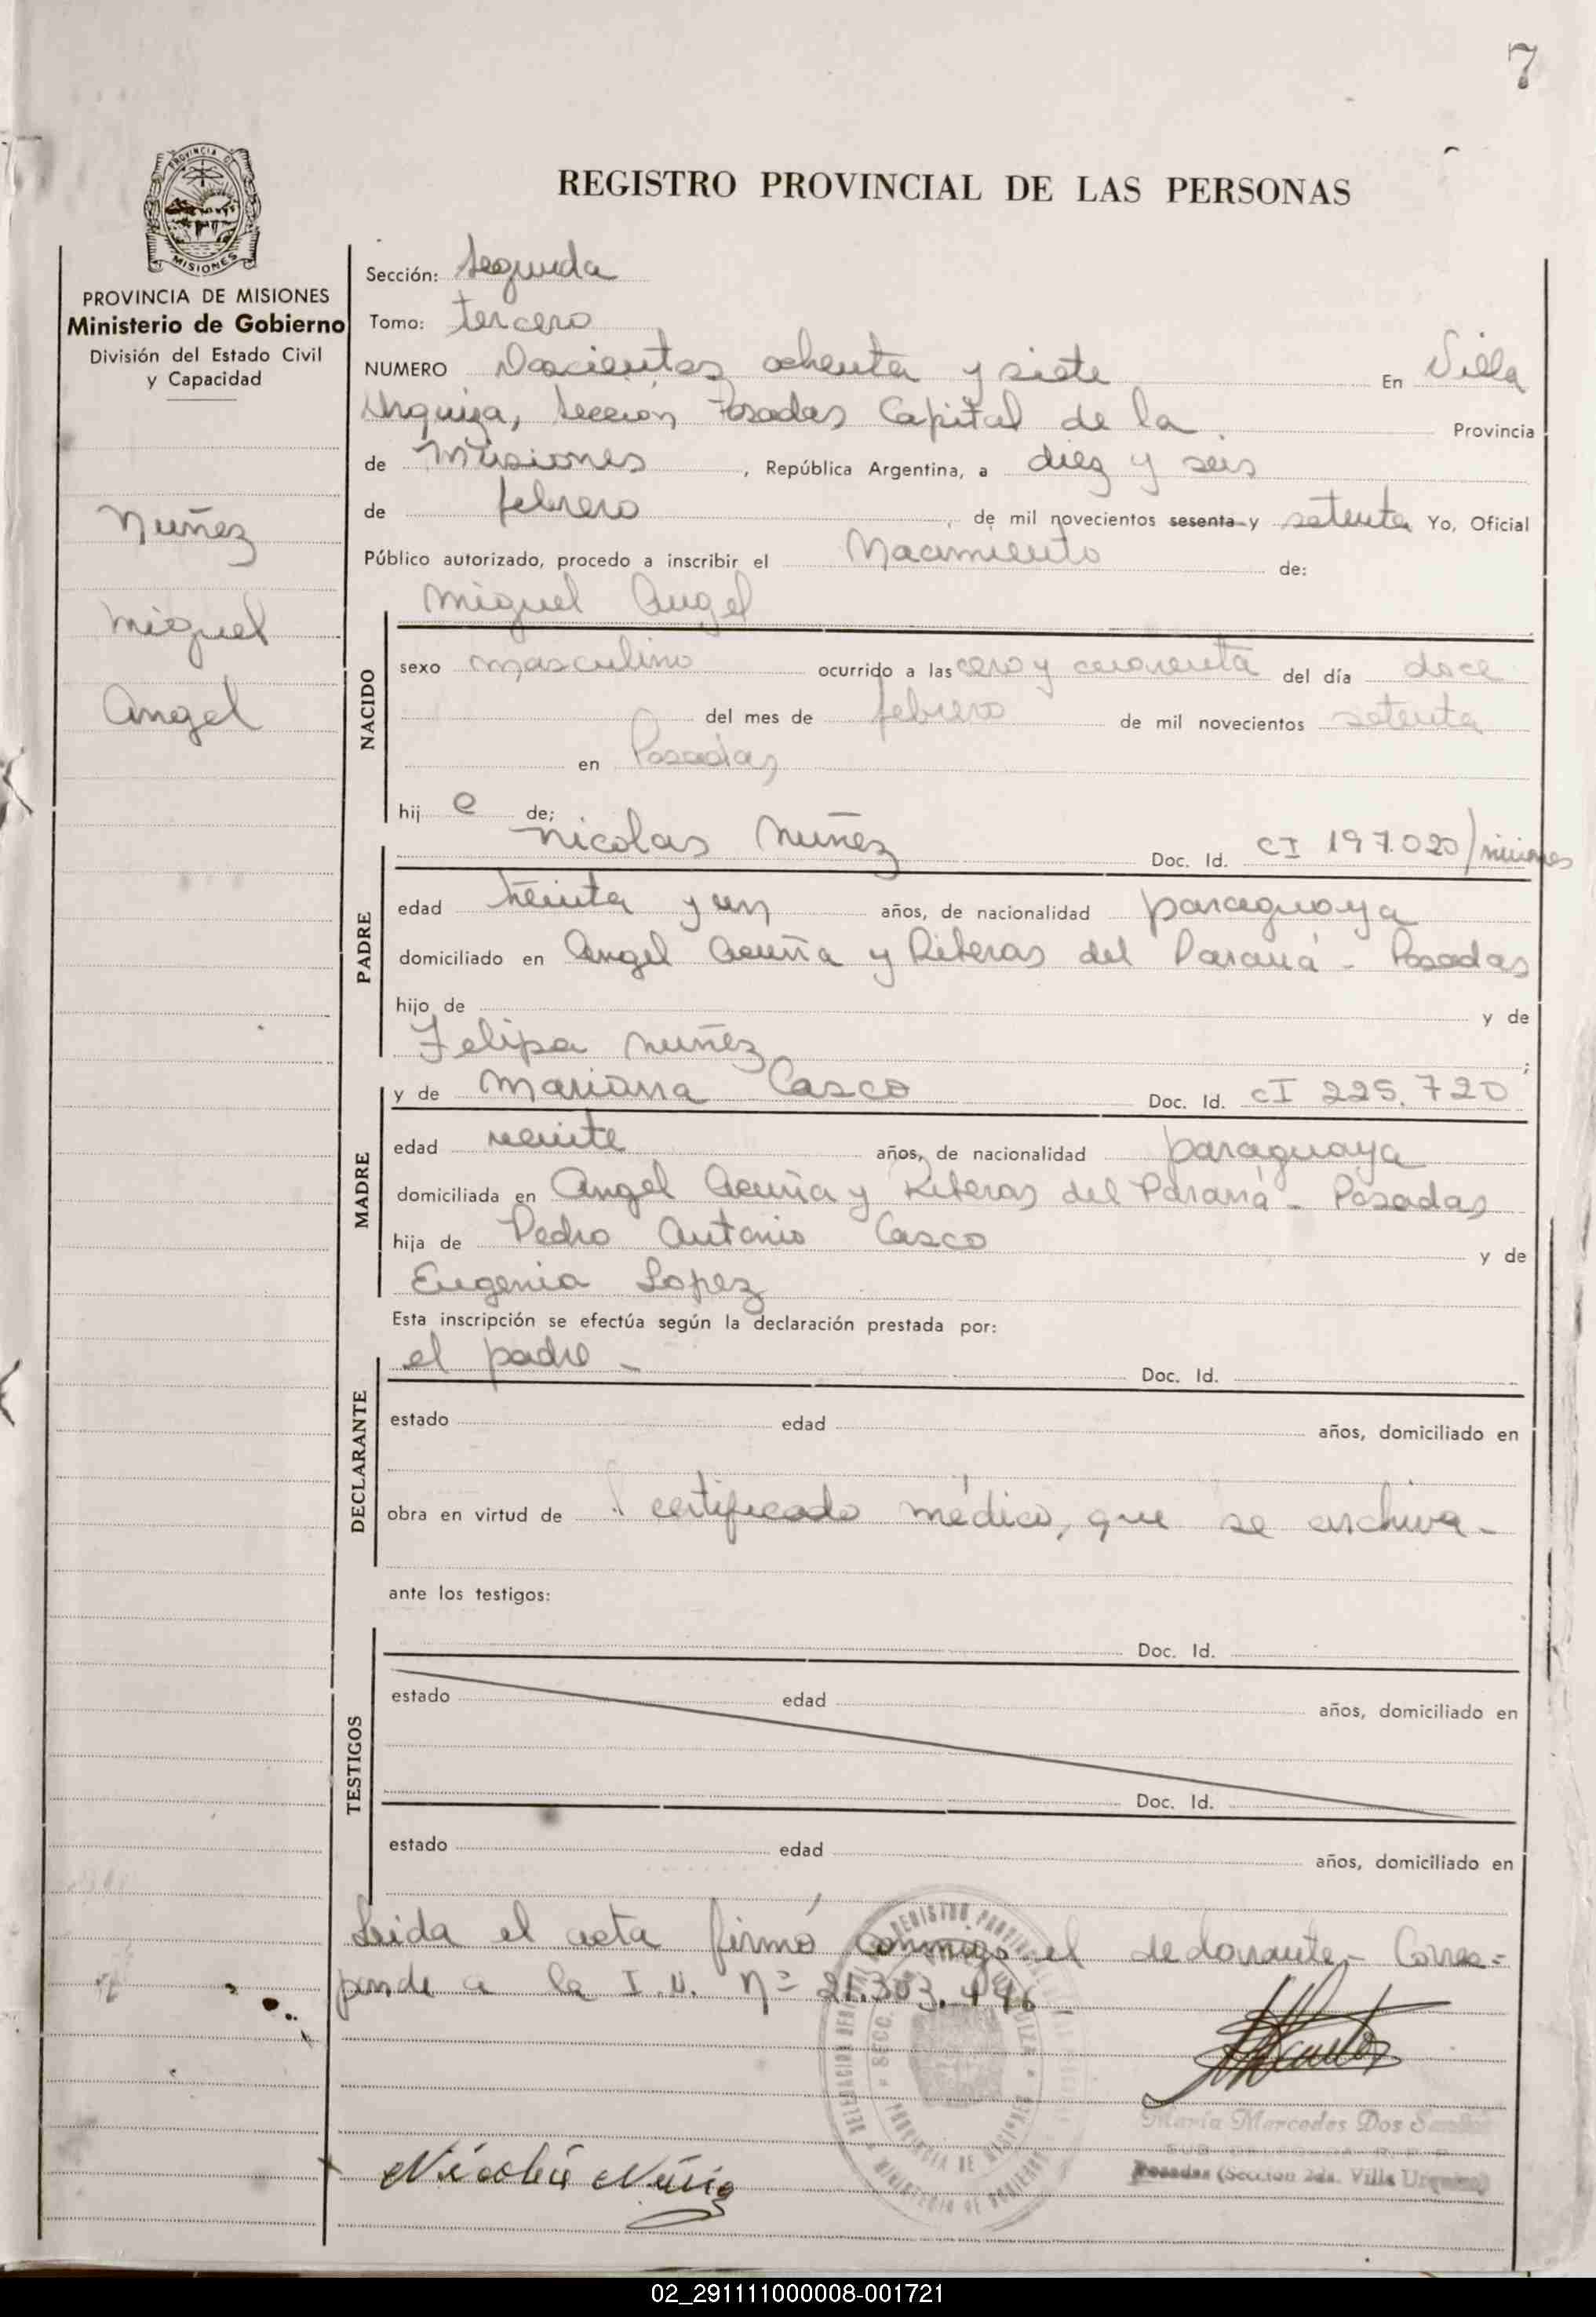 7
PROVINCIA DE
MISIONES
PROVINCIA DE MISIONES
Ministerio de Gobierno
División del Estado Civil
y Capacidad
Nuñez
Miguel
Angel
REGISTRO PROVINCIAL DE LAS PERSONAS
Sección: Segunda
Tomo: tercero
NUMERO Doscientos ochenta y siete En Villa
Urquiza, Sección Posadas Capital de la Provincia
de Misiones, República Argentina, a diez y seis
de febrero de mil novecientos sesenta y setenta Yo, Oficial
Público autorizado, procedo a inscribir el Nacimiento de:
Miguel Angel
NACIDO
sexo masculino ocurrido a las cero y cuarenta del día doce
del mes de febrero de mil novecientos setenta
en Posadas
hij o de;
Nicolas Nuñez Doc. Id. CI 197.020/misiones
PADRE
edad treinta y un años, de nacionalidad paraguaya
domiciliado en Angel Acuña y Riberas del Paraná - Posadas
hijo de y de
Felipa Nuñez ;
y de Mariana Casco Doc. Id. CI 225.720
MADRE
edad veinte años, de nacionalidad paraguaya
domiciliada en Angel Acuña y Riberas del Paraná - Posadas
hija de Pedro Antonio Casco y de
Eugenia Lopez
Esta inscripción se efectúa según la declaración prestada por:
el padre - Doc. Id.
DECLARANTE
estado edad años, domiciliado en
obra en virtud de certificado médico, que se archiva -
ante los testigos:
Doc. Id.
TESTIGOS
estado edad años, domiciliado en
Doc. Id.
estado edad años, domiciliado en
Leida el acta firmó conmigo el declarante - Corres=
ponde a la I.N. Nº 21.303.496
María Mercedes Dos Santos
Posadas (Sección 2da. Villa Urquiza)
Nicolás Núñez
02_291111000008-001721